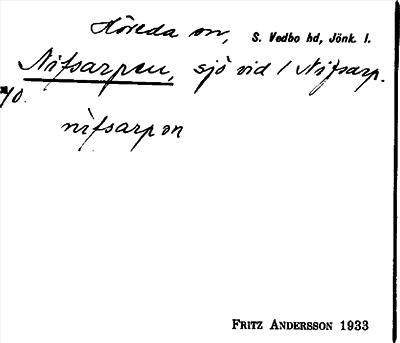 Höreda sn, S. Vedbo hd, Jönk. l.
Nifsarpen, sjö vid / Nifsarp.
70.
nifsarpən
FRITZ ANDERSSON 1933